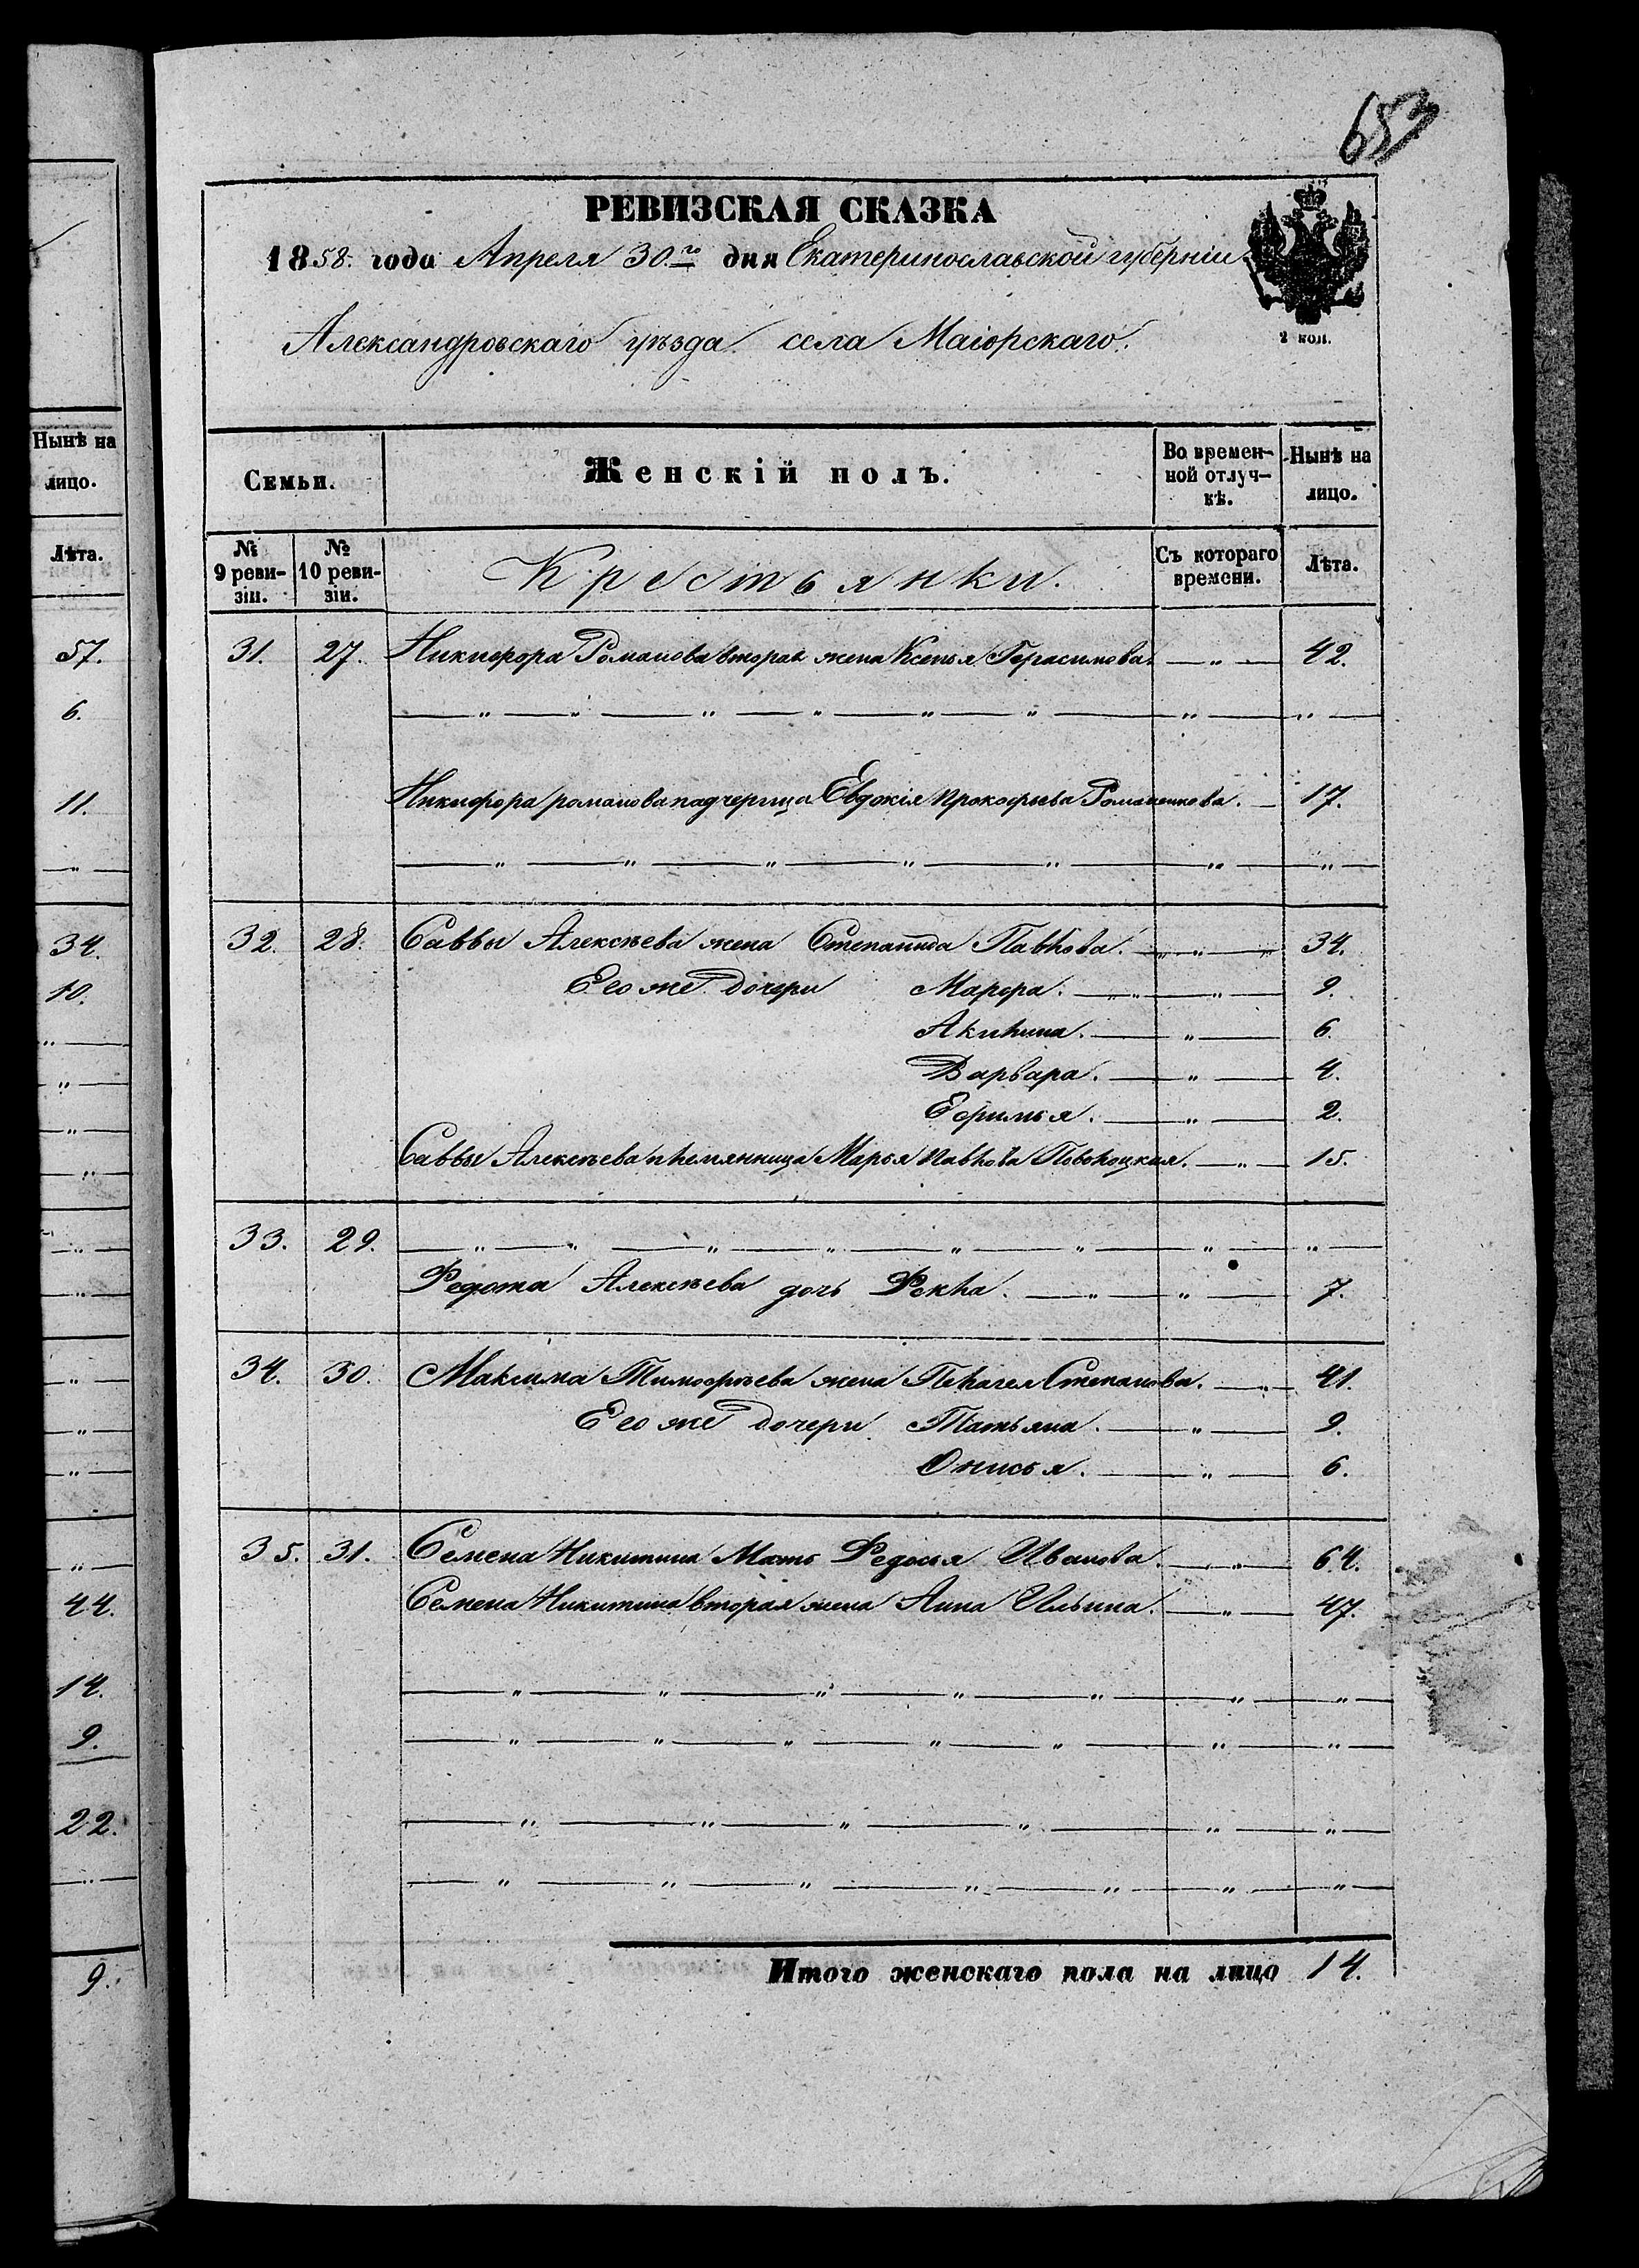 653
РЕВИЗСКАЯ СКАЗКА
1858. года Апреля 30го дня Екатеринославской губерніи
Александровскаго уѣзда села Маіорскаго.
2 коп.
Нынѣ на лицо.
Лѣта.
57.
6.
11.
34.
10.
44.
14.
9.
22.
9.
Семьи. Женскій полъ. Во времен-ной отлуч-кѣ. Нынѣ на лицо.
№ 9 реви-зіи. № 10 реви-зіи. Крестьянки. Съ котораго времени. Лѣта.
31. 27. Никифора Романова вторая жена Ксенья Герасимова. — " — 42.
— " — " — " — " — " — " — " — " —
Никифора романова падчерица Евдокія Прокофьева Романенкова. — 17.
— " — " — " — " — " — " — " —
32. 28. Саввы Алексѣева жена Степанида Павлова. — " — " — 34.
Его же дочери Марфа. — " — " — 9.
Акилина. — " — 6.
Варвара. — " — 4.
Ефимья. — " — 2.
Саввы Алексѣева племянница Марья Павлова Поволоцкая. — " — 15.
33. 29. — " — " — " — " — " — " — " — " —
Федота Алексѣева дочь Фекла. — " — " — 7.
34. 30. Максима Тимофѣева жена Пелагея Степанова. — " — 41.
Его же дочери Татьяна. — " — 9.
Онисья. — " — 6.
35. 31. Семена Никитина Мать Федосья Иванова. — " — 64.
Семена Никитина вторая жена Анна Ильина. — " — 47.
— " — " — " — " — " — " — " —
— " — " — " — " — " — " — " —
— " — " — " — " — " — " —
— " — " — " — " — " — " — " —
Итого женскаго пола на лицо 14.